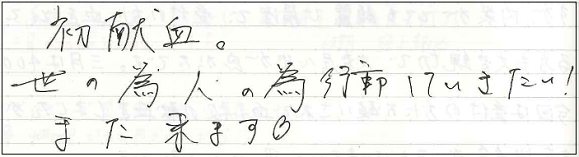 初献血。
世の為人の為行動していきたい!
また来ます